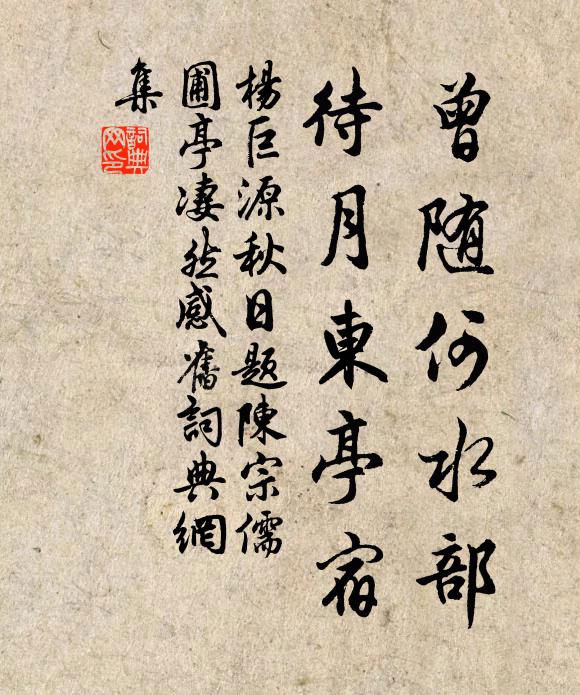 曾随何水部
待月東亭宿
楊巨源秋日題陳宗儒
圃亭凄然感舊詞典網
集
詞典
网印